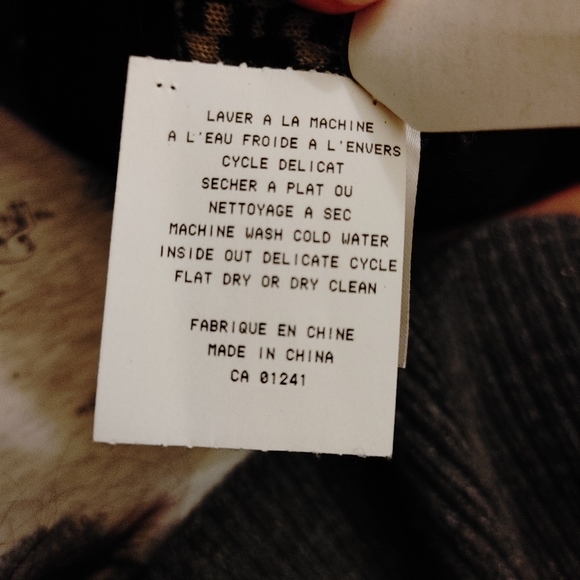 LAVER A LA MACHINE
A L'EAU FROIDE A L'ENVERS
CYCLE DELICAT
SECHER A PLAT OU
NETTOYAGE A SEC
MACHINE WASH COLD WATER
INSIDE OUT DELICATE CYCLE
FLAT DRY OR DRY CLEAN
FABRIQUE EN CHINE
MADE IN CHINA
CA 01241